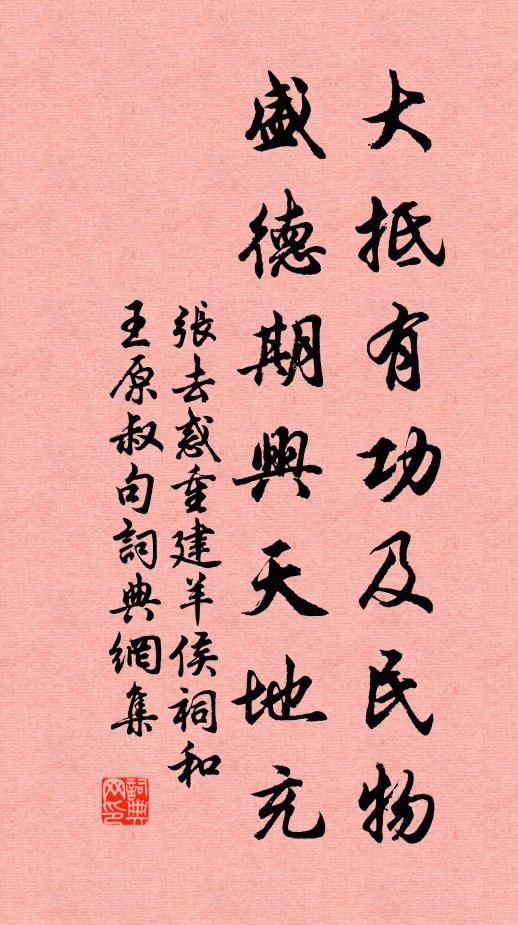 大抵有功及民物
盛德期興天地充
張去惑重建羊侯祠和
王原叔句詞典網集
詞典
网印